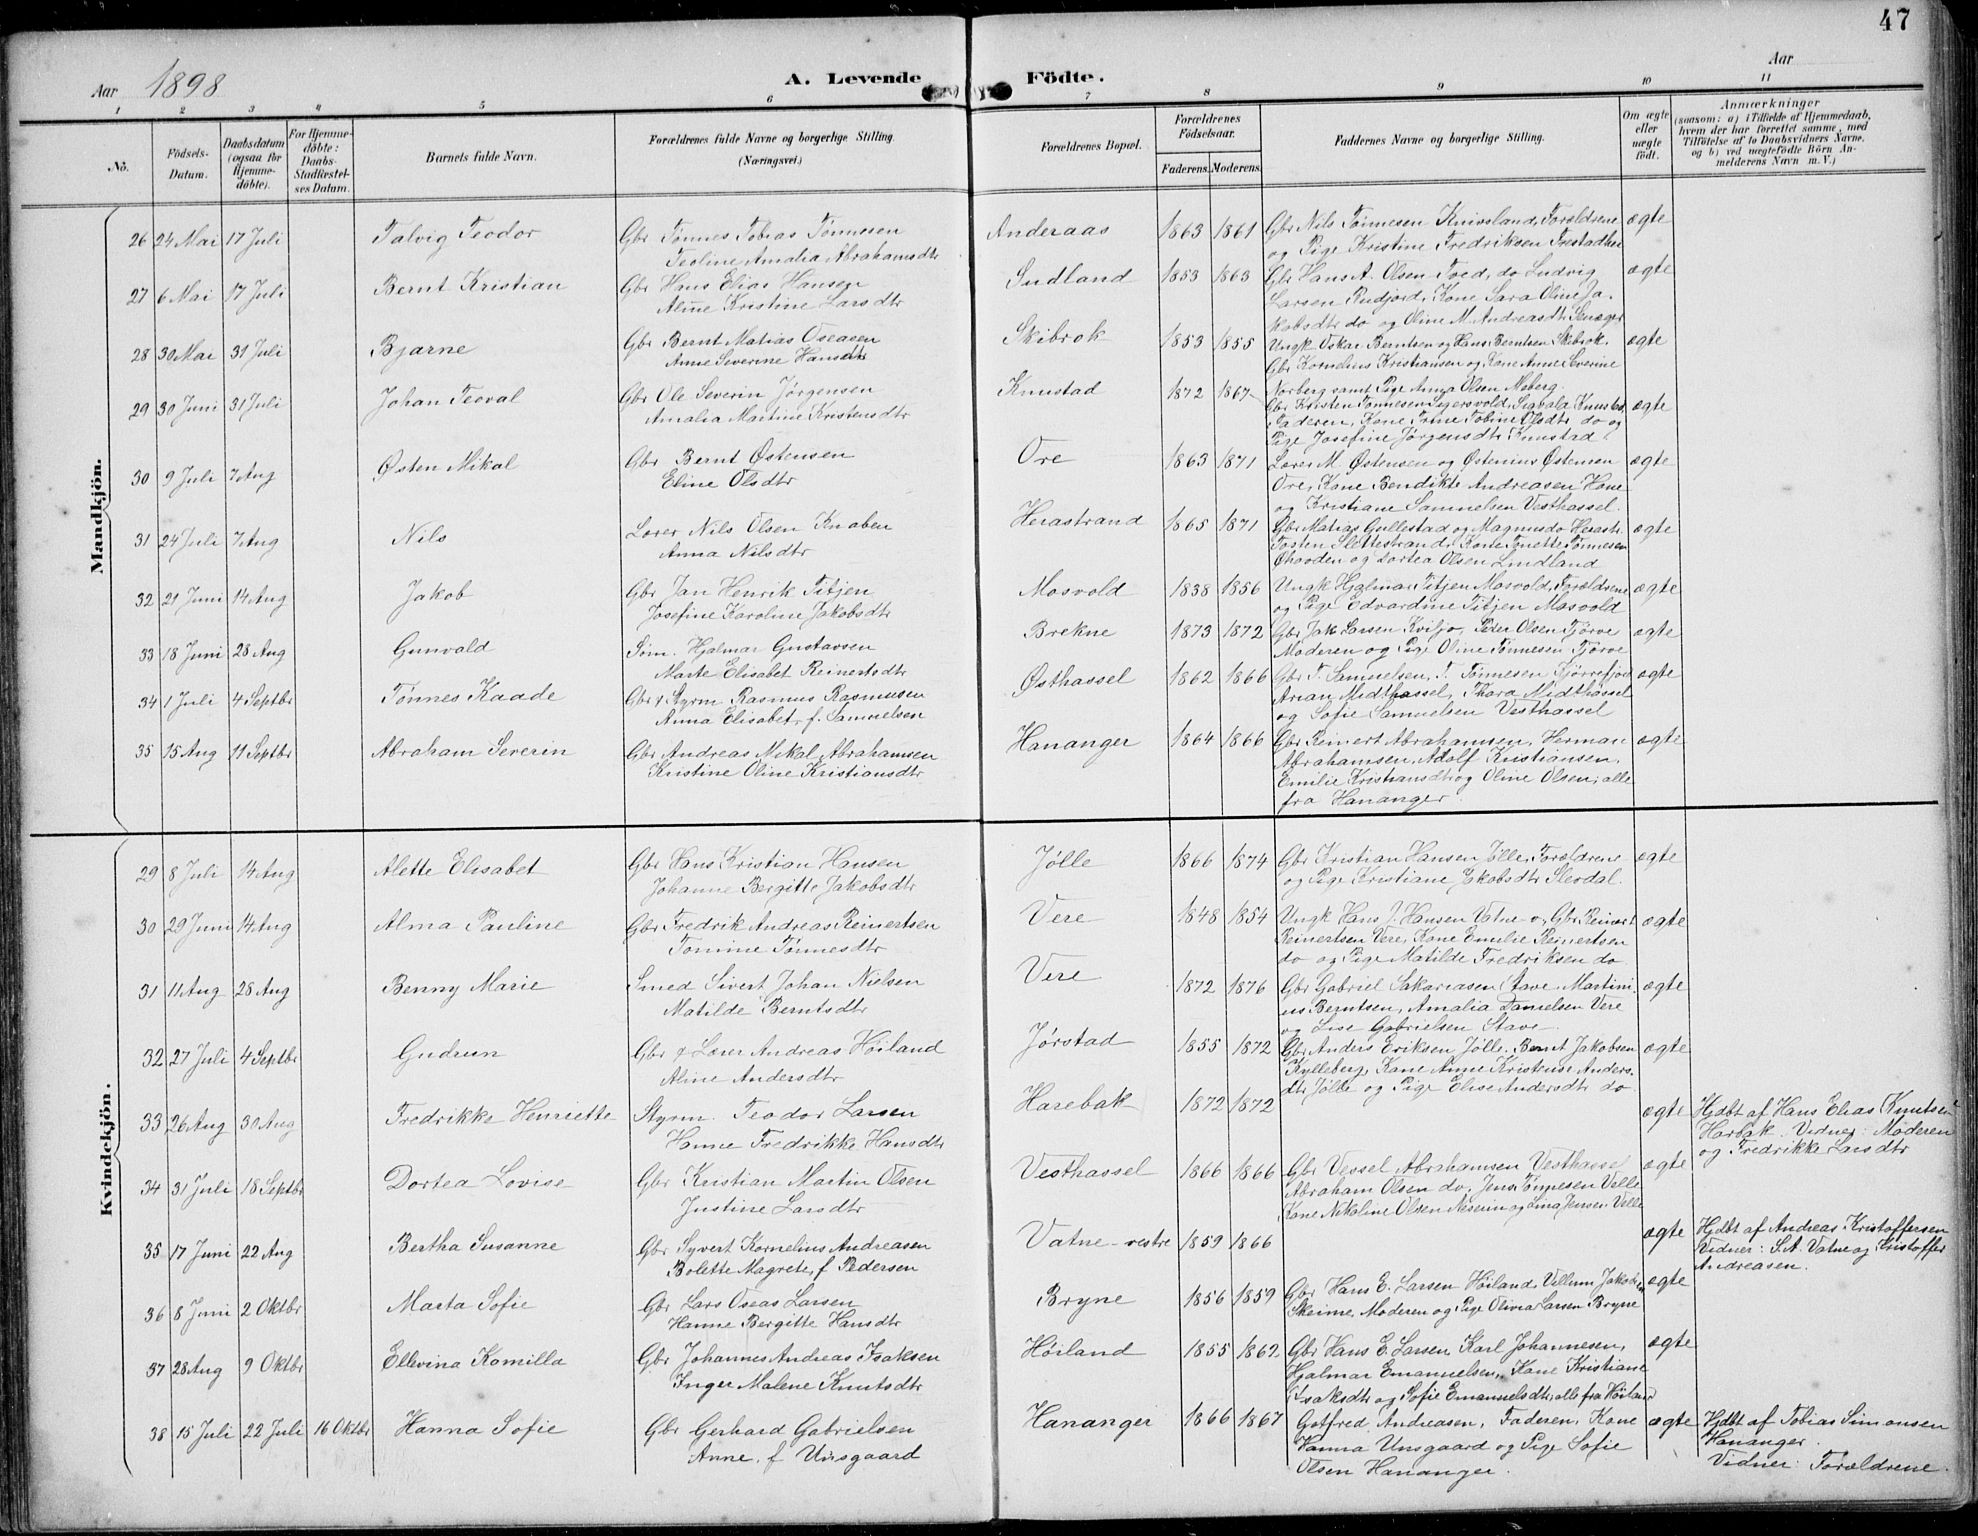 47
Aar 1898
A. Levende Födte.
Aar
1 2 3 4 5 6 7 8 9 10 11
No.
Födsels-Datum.
Daabsdatum (ogsaa for Hjemme-döbte).
For Hjemme-döbte: Daabs-Stadfæstel-ses Datum.
Barnets fulde Navn.
Forældrenes fulde Navne og borgerlige Stilling. (Næringsvei.)
Forældrenes Bopæl.
Forældrenes Födselsaar.
Faderens. Moderens.
Faddernes Navne og borgerlige Stilling.
Om ægte eller uægte födt.
Anmærkninger
(saasom: a) i Tilfælde af Hjemmedaab, hvem der har forrettet samme, med Tilföielse af to Daabsvidners Navne, og b) ved uægtefödte Börn Anmelderens Navn m. V.)
Mandkjön.
26 24 Mai 17 Juli Talvig Teodor Gbr Tønnes Tobias Tønnesen Anderaas 1863 1861 Gbr Nils Tønnesen Knivsland, Forældrene ægte
Teoline Amalia Abrahamsdtr og Pige Kristine Fredriksen
27 6 Mai 17 Juli Bernt Kristian Gbr Hans Elias Hansen Sudland 1853 1863 Gbr Hans A. Olsen Tved, do Ludvig ægte
Aline Kristine Larsdtr Larsen Rudjord, Kone Sara Oline Ja-
kobsdtr do og Oline M. Andreasdtr
28 30 Mai 31 Juli Bjarne Gbr Bernt Matias Oseasen Skibrok 1853 1855 Ungk Oskar Berntsen og Hans Berntsen Skibrok, ægte
Anne Severine Hansdtr Gbr Kornelius Kristiansen og Kone Anne Severine
Norberg samt Pige Anna Olsen Meberg.
29 30 Juni 31 Juli Johan Teoval Gbr Ole Severin Jørgensen Knustad 1872 1867 Gbr Kristen Tønnesen Sigersvold, Sigvald Knustad, ægte
Amalia Martine Kristensdtr Faderen, Kone Trine Tobine Olsdtr do og
Pige Josefine Jørgensdtr Knustad.
30 9 Juli 7 Aug Østen Mikal Gbr Bernt Østensen Ore 1863 1871 Lærer M. Østensen og Østenius Østensen ægte
Eline Olsdtr Ore, Kone Bendikte Andreasen Hane
og Kristiane Samuelsen Vesthassel.
31 24 Juli 7 Aug Nils Lærer Nils Olsen Knaben Herastrand 1865 1871 Gbr Matias Gullestad og Magnus do Herastr. ægte
Anna Nilsdtr Tosten Slettestrand, Kone Tonette Tønnesen
og Dortea Olsen Lindland
32 21 Juni 14 Aug Jakob Gbr Jan Henrik Titjen Mosvold 1838 1856 Ungk Hjalmar Titjen Mosvold, Forældrene ægte
Josefine Karoline Jakobsdtr og Pige Edvardine Titjen Mosvold
33 18 Juni 28 Aug Gunvald Søm. Hjalmar Gustavsen Brekne 1873 1872 Gbr Jak Larsen Kviljo, Peder Olsen Tjørve ægte
Marte Elisabet Reinertsdtr Moderen og Pige Oline Tønnesen Tjørve
34 1 Juli 4 Septbr Tønnes Kaade Gbr & Styrm Rasmus Rasmussen Østhassel 1862 1866 Gbr T. Samuelsen, T. Tønnesen ægte
Anna Elisabet, f. Samuelsen Arian Midthassel, Thara Midthassel
og Sofie Samuelsen Vesthassel
35 15 Aug 11 Septbr Abraham Severin Gbr Andreas Mikal Abrahamsen Hananger 1864 1866 Gbr Reinert Abrahamsen, Herman ægte
Kristine Oline Kristiansdtr Abrahamsen, Adolf Kristiansen,
Emilie Kristiansdtr og Oline Olsen, alle
fra Hananger.
Kvindekjön.
29 8 Juli 14 Aug Alette Elisabet Gbr Hans Kristian Hansen Jølle 1866 1874 Gbr Kristian Hansen Jølle, Forældrene ægte
Johanne Bergitte Jakobsdtr og Pige Kristiane Jakobsdtr Slevdal.
30 29 Juni 14 Aug Alma Pauline Gbr Fredrik Andreas Reinertsen Vere 1848 1854 Ungk Hans J. Hansen Vatne o, Gbr Reinert ægte
Tomine Tønnesdtr Reinertsen Vere, Kone Emelie Reinertsen
do og Pige Matilde Fredriksen do
31 11 Aug 28 Aug Benny Marie Smed Sivert Johan Nielsen Vere 1872 1876 Gbr Gabriel Sakariasen Stave, Martini- ægte
Matilde Berntsdtr us Berntsen, Amalia Danielsen Vere
og Lise Gabrielsen Stave.
32 27 Juli 4 Septbr Gudrun Gbr & Lærer Andreas Høiland Jørstad 1855 1872 Gbr Anders Eriksen Jølle, Bernt Jakobsen ægte
Aline Andersdtr Kylleberg, Kone Anne Kristense Anders-
dtr Jølle og Pige Elise Andersdtr do.
33 26 Aug 30 Aug Fredrikke Henriette Styrm. Teodor Larsen Harebak 1872 1872 ægte Hjdbt af Hans Elias Knutsen
Hanne Fredrikke Hansdtr Harbak. Vidner: Moderen
og Fredrikke Larsdtr
34 31 Juli 18 Septbr Dortea Lovise Gbr Kristian Martin Olsen Vesthassel 1866 1866 Gbr Vessel Abrahamsen Vesthassel ægte
Justine Larsdtr Abraham Olsen do, Jens Tønnesen Velle
Kone Nikoline Olsen og Lina Jensen Velle
35 17 Juni 22 Aug Bertha Susanne Gbr Syvert Kornelius Andreasen Vatne-vestre 1859 1866 ægte Hjdbt af Andreas Kristoffersen
Bolette Magrete, f Pedersen Vidner: S.A. Vatne og Kristoffer
Andreasen.
36 8 Juni 2 Oktbr Marta Sofie Gbr Lars Oseas Larsen Bryne 1856 1859 Gbr Hans E. Larsen Høiland, Villum Jakobsen ægte
Hanne Bergitte Hansdtr Skeime, Moderen og Pige Olivia Larsen Bryne
37 28 Aug 9 Oktbr Ellevina Komilla Gbr Johannes Andreas Isaksen Høiland 1855 1862 Gbr Hans E. Larsen Karl Johannesen, ægte
Inger Malene Knutsdtr Hjalmar Emanuelsen, Kone Kristiane
Isaksdtr og Sofie Emanuelsdtr, alle fra Høiland
38 15 Juli 22 Juli 16 Oktbr Hanna Sofie Gbr Gerhard Gabrielsen Hananger 1866 1867 Gotfred Andreasen, Faderen, Kone ægte Hjdbt af Tobias Simonsen
Anne, f Unsgaard Hanna Unsgaard og Pige Sofie Hananger.
Olsen Hananger. Vidner: Forældrene.